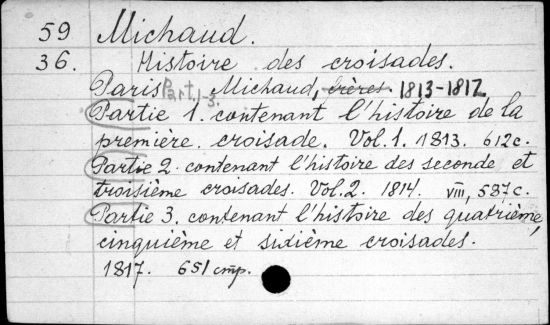 59 Michaud.
36. Histoire des croisades.
Paris Part. 1-3. Michaud, frères. 1813-1817
Partie 1. contenant l'histoire de la
première croisade. Vol. 1. 1813. 612 c.
Partie 2. contenant l'histoire des seconde et
troisième croisades. Vol. 2. 1814. VIII, 587 c.
Partie 3. contenant l'histoire des quatrième,
cinquième et sixième croisades.
1817. 651 стр.